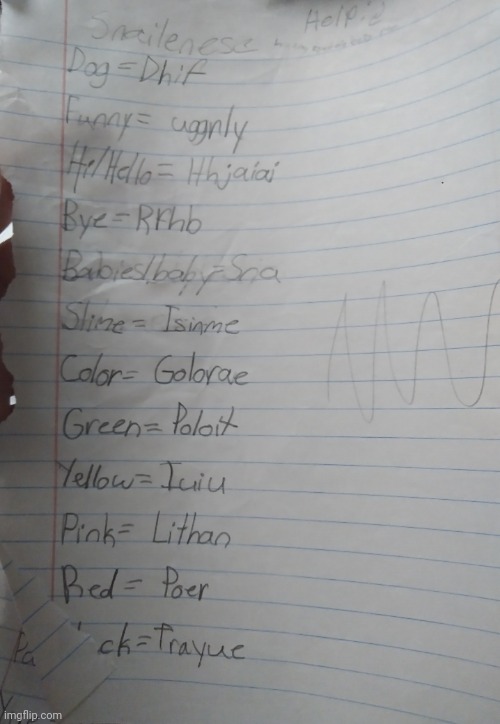 Snailenese
Help
Dog = Dhif
Funny = uggnly
Hi/Hello = Hhjaiai
Bye = RRhb
Babies/baby = Sria
Slime = Isinme
Color = Golorae
Green = Poloit
Yellow = Iuiu
Pink = Lithan
Red = Poer
ck = Trayue
Pa
imgflip.com